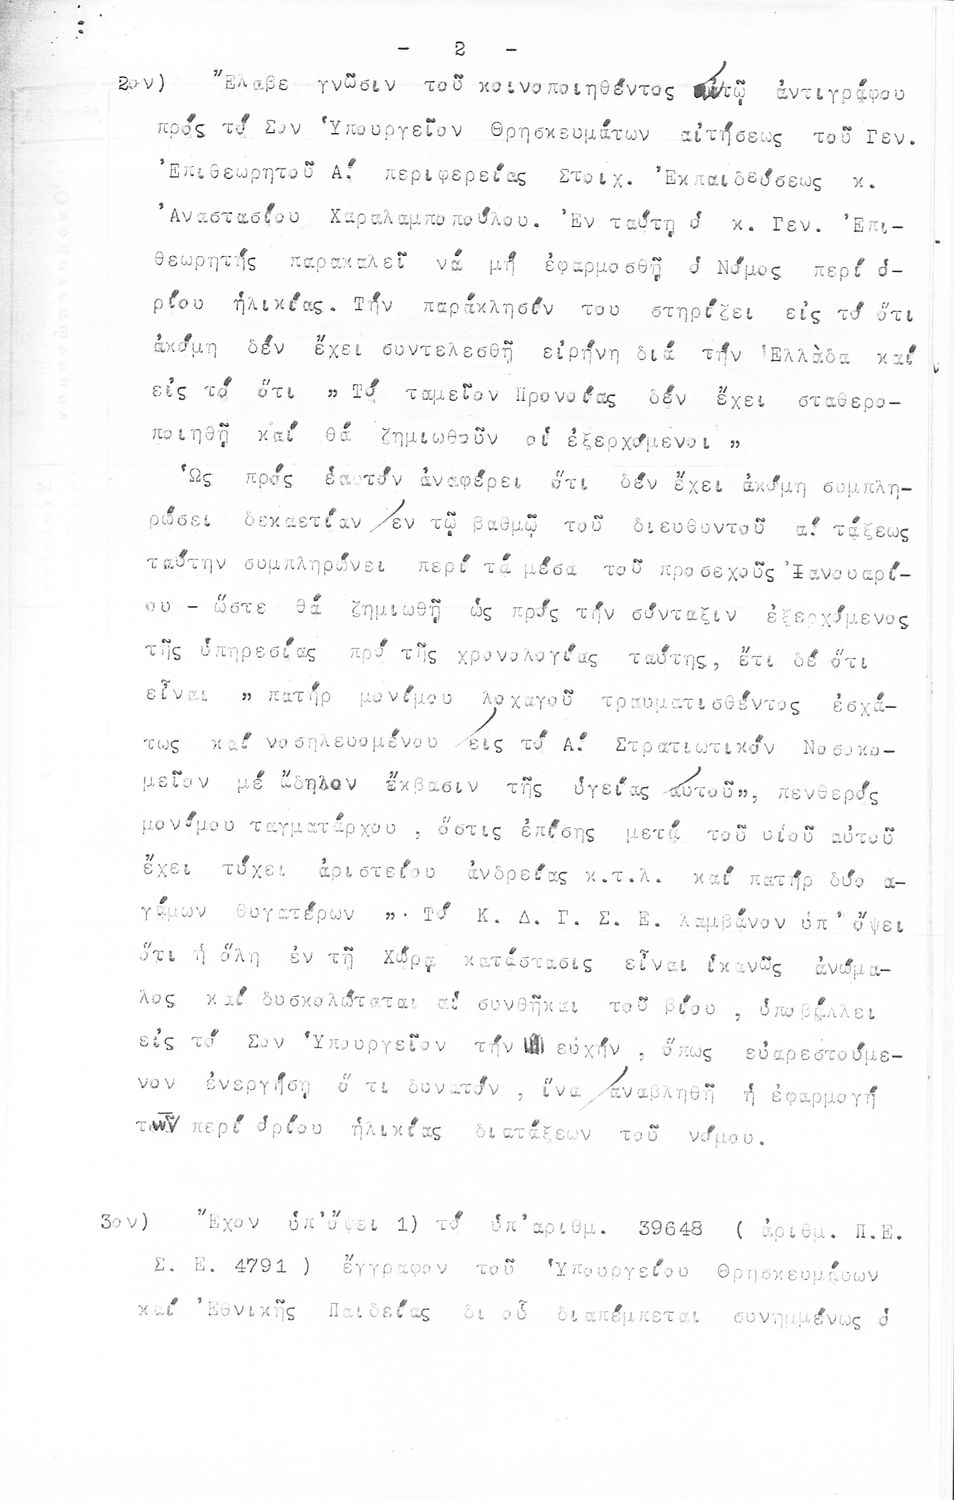 - 2 -
2ον) Ἔλαβε γνῶσιν τοῦ κοινοποιηθέντος αὐτῷ ἀντιγράφου
πρός τό Σον Ὑπουργεῖον Θρησκευμάτων αἰτήσεως τοῦ Γεν.
Ἐπιθεωρητοῦ Α! περιφερείας Στοιχ. Ἐκπαιδεύσεως κ.
Ἀναστασίου Χαραλαμποπούλου. Ἐν ταύτῃ ὁ κ. Γεν. Ἐπι-
θεωρητής παρακαλεῖ νά μή ἐφαρμοσθῇ ὁ Νόμος περί ὁ-
ρίου ἡλικίας. Τήν παράκλησίν του στηρίζει εἰς τό ὅτι
ἀκόμη δέν ἔχει συντελεσθῇ εἰρήνη διά τήν Ἑλλὰδα καί
εἰς τό ὅτι " Τό ταμεῖον Προνοίας δέν ἔχει σταθερο-
ποιηθῇ καί θά ζημιωθοῦν οἱ ἐξερχόμενοι "
Ὡς πρός ἑαυτόν ἀναφέρει ὅτι δέν ἔχει ἀκόμη συμπλη-
ρώσει δεκαετίαν ἐν τῷ βαθμῷ τοῦ διευθυντοῦ α! τάξεως
ταύτην συμπληρώνει περί τά μέσα τοῦ προσεχοῦς Ἰανουαρί-
ου - ὥστε θά ζημιωθῇ ὡς πρός τήν σύνταξιν ἐξερχόμενος
τῆς ὑπηρεσίας πρό τῆς χρονολογίας ταύτης, ἔτι δέ ὅτι
εἶναι " πατήρ μονίμου λοχαγοῦ τραυματισθέντος ἐσχά-
τως καί νοσηλευομένου εἰς τό Α! Στρατιωτικόν Νοσοκο-
μεῖον μέ ἄδηλον ἔκβασιν τῆς ὑγείας αὐτοῦ", πενθερός
μονίμου ταγματάρχου , ὅστις ἐπίσης μετά τοῦ υἱοῦ αὐτοῦ
ἔχει τύχει ἀριστείου ἀνδρείας κ.τ.λ. καί πατήρ δύο α-
γάμων θυγατέρων ". Τό Κ. Δ. Γ. Σ. Ε. λαμβάνον ὑπ' ὄψει
ὅτι ἡ ὅλη ἐν τῇ Χώρᾳ κατάστασις εἶναι ἱκανῶς ἀνώμα-
λος καί δυσκολώταται αἱ συνθῆκαι τοῦ βίου , ὑποβάλλει
εἰς τό Σον Ὑπουργεῖον τήν εὐχήν , ὅπως εὐαρεστούμε-
νον ἐνεργήσῃ ὅ τι δυνατόν , ἵνα ἀναβληθῇ ἡ ἐφαρμογή
τῶν περί ὁρίου ἡλικίας διατάξεων τοῦ νόμου.
3ον) Ἔχον ὑπ'ὄψει 1) τό ὑπ'αριθμ. 39648 ( ἀριθμ. Π.Ε.
Σ. Ε. 4791 ) ἔγγραφον τοῦ Ὑπουργείου Θρησκευμάυων
καί Ἐθνικῆς Παιδείας δι οὗ διαπέμπεται συνημμένως ὁ